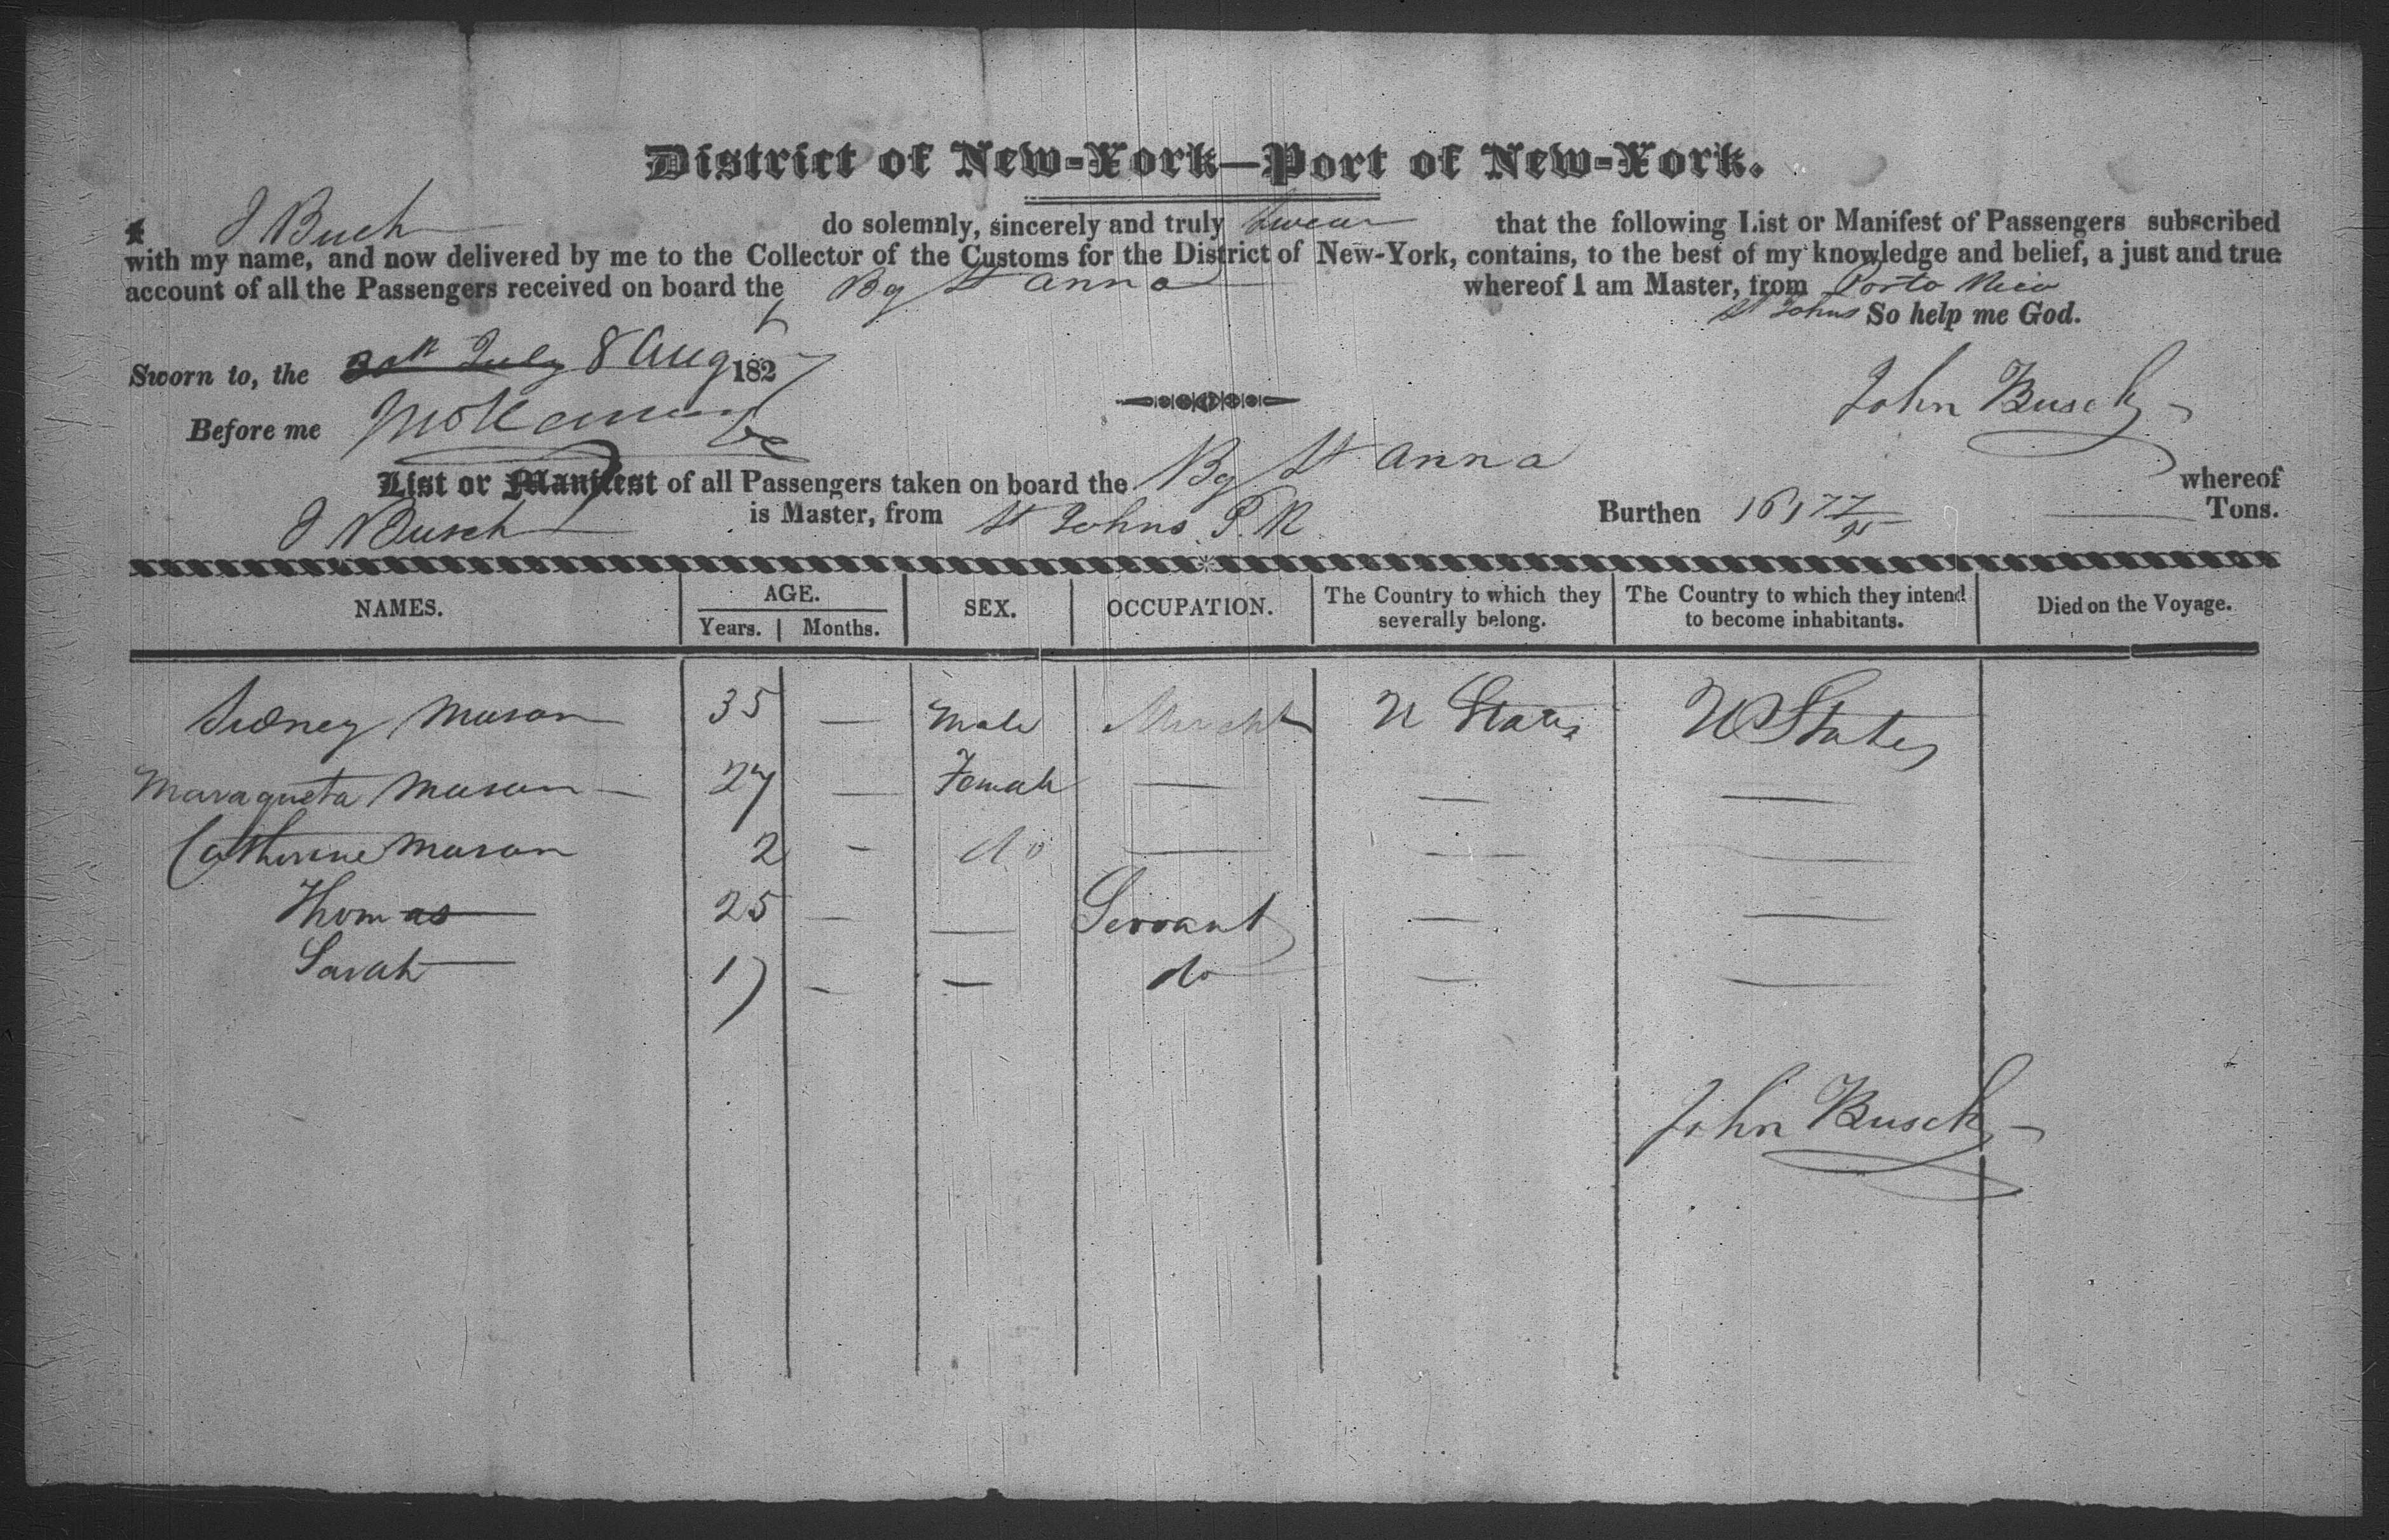 District of New-York—Port of New-York.
I J Buch do solemnly, sincerely and truly swear that the following List or Manifest of Passengers subscribed
with my name, and now delivered by me to the Collector of the Customs for the District of New-York, contains, to the best of my knowledge and belief, a just and true
account of all the Passengers received on board the Bg St Anna whereof I am Master, from Porto Rico
St Johns So help me God.
Sworn to, the July 8 Aug 1827
Before me
John Busch
List or Manifest of all Passengers taken on board the Bg St Anna whereof
J Busch is Master, from St Johns P. R Burthen Tons.
NAMES. AGE. SEX. OCCUPATION. The Country to which they severally belong. The Country to which they intend to become inhabitants. Died on the Voyage.
Years. Months.
Sidney Mason 35 — Male Mercht U States U States
Maraqueta Mason — 27 — Female — — —
Catherine Mason 2 - do — — —
Thomas 25 — — Servant — —
Sarah 17 - — do — —
John Busch